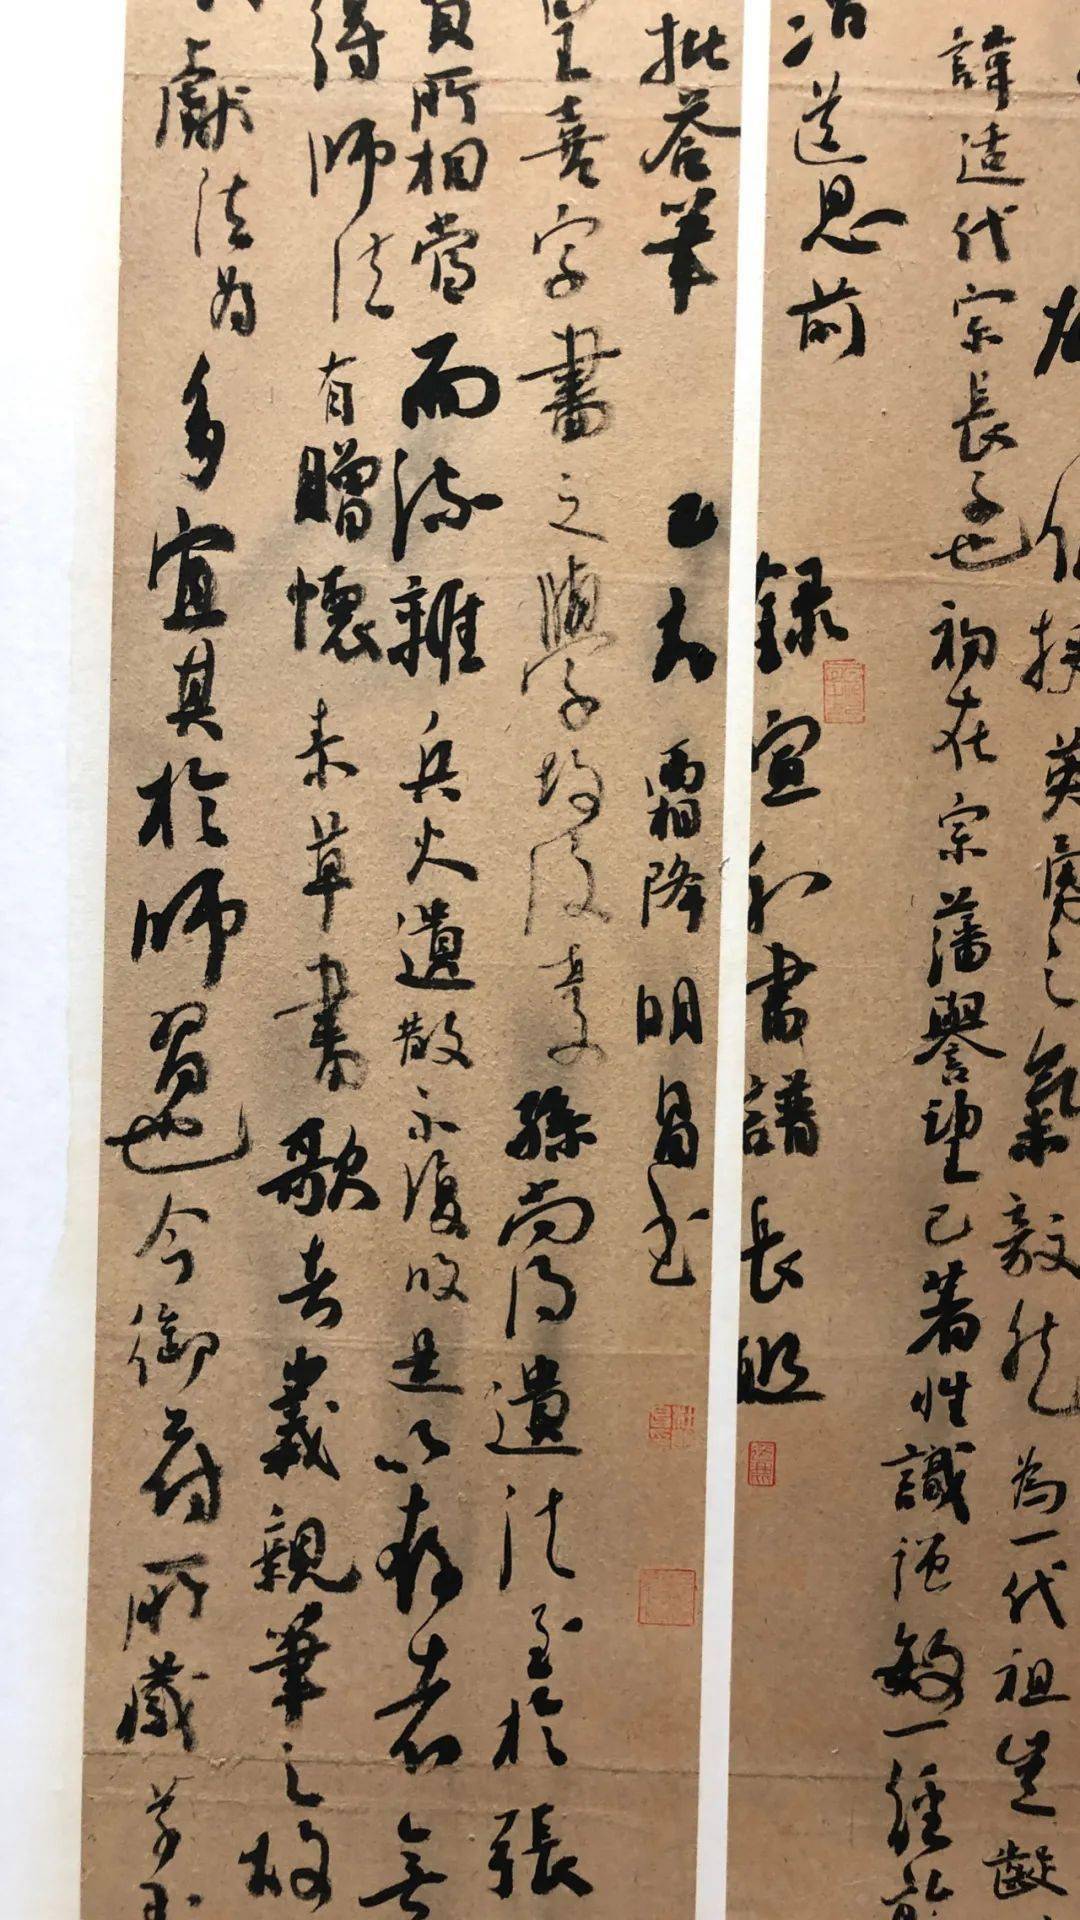 抱英勇之氣毅然為一代祖生齠
諱适代宗長子也初在宗藩譽望已著性識強敏一經前
治道思前
錄宣和書譜長
批荅筆 乙未霜降明昌書
皇喜字書之學故後孫尚得遺法至於張
所相當而流離兵火遺散不復收是以存者無
得師法有贈懷素草書歌者義親筆之故
獻法為多宜其於師習也今御府所藏草書